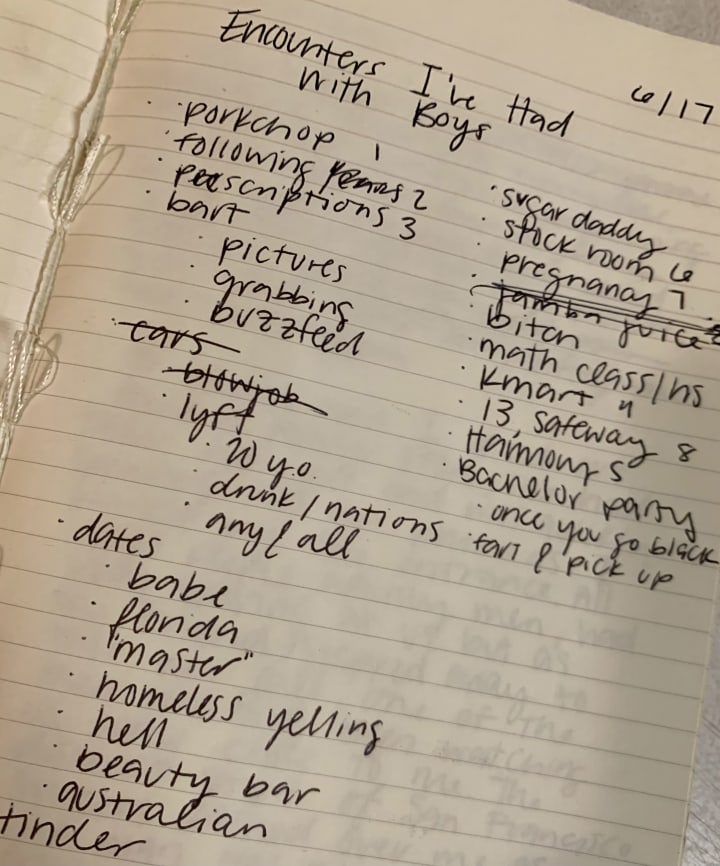 Encounters I've Had
with Boys
6/17
· porkchop 1
· following years 2
· perscriptions 3
· bart
· pictures
· grabbing
· buzzfeed
· cars
· blowjob
· lyft
· 20 y.o.
· drunk / nations
· any & all
· dates
· babe
· florida
· "master"
· homeless yelling
· hell
· beauty bar
· australian
tinder
· sugar daddy
· stock room 6
· pregnancy 7
· jamba juice
· bitch
· math class/hs
· Kmart 4
· 13, safeway 8
· Harmony 5
· Bachelor party
· once you go black
· fart & pick up